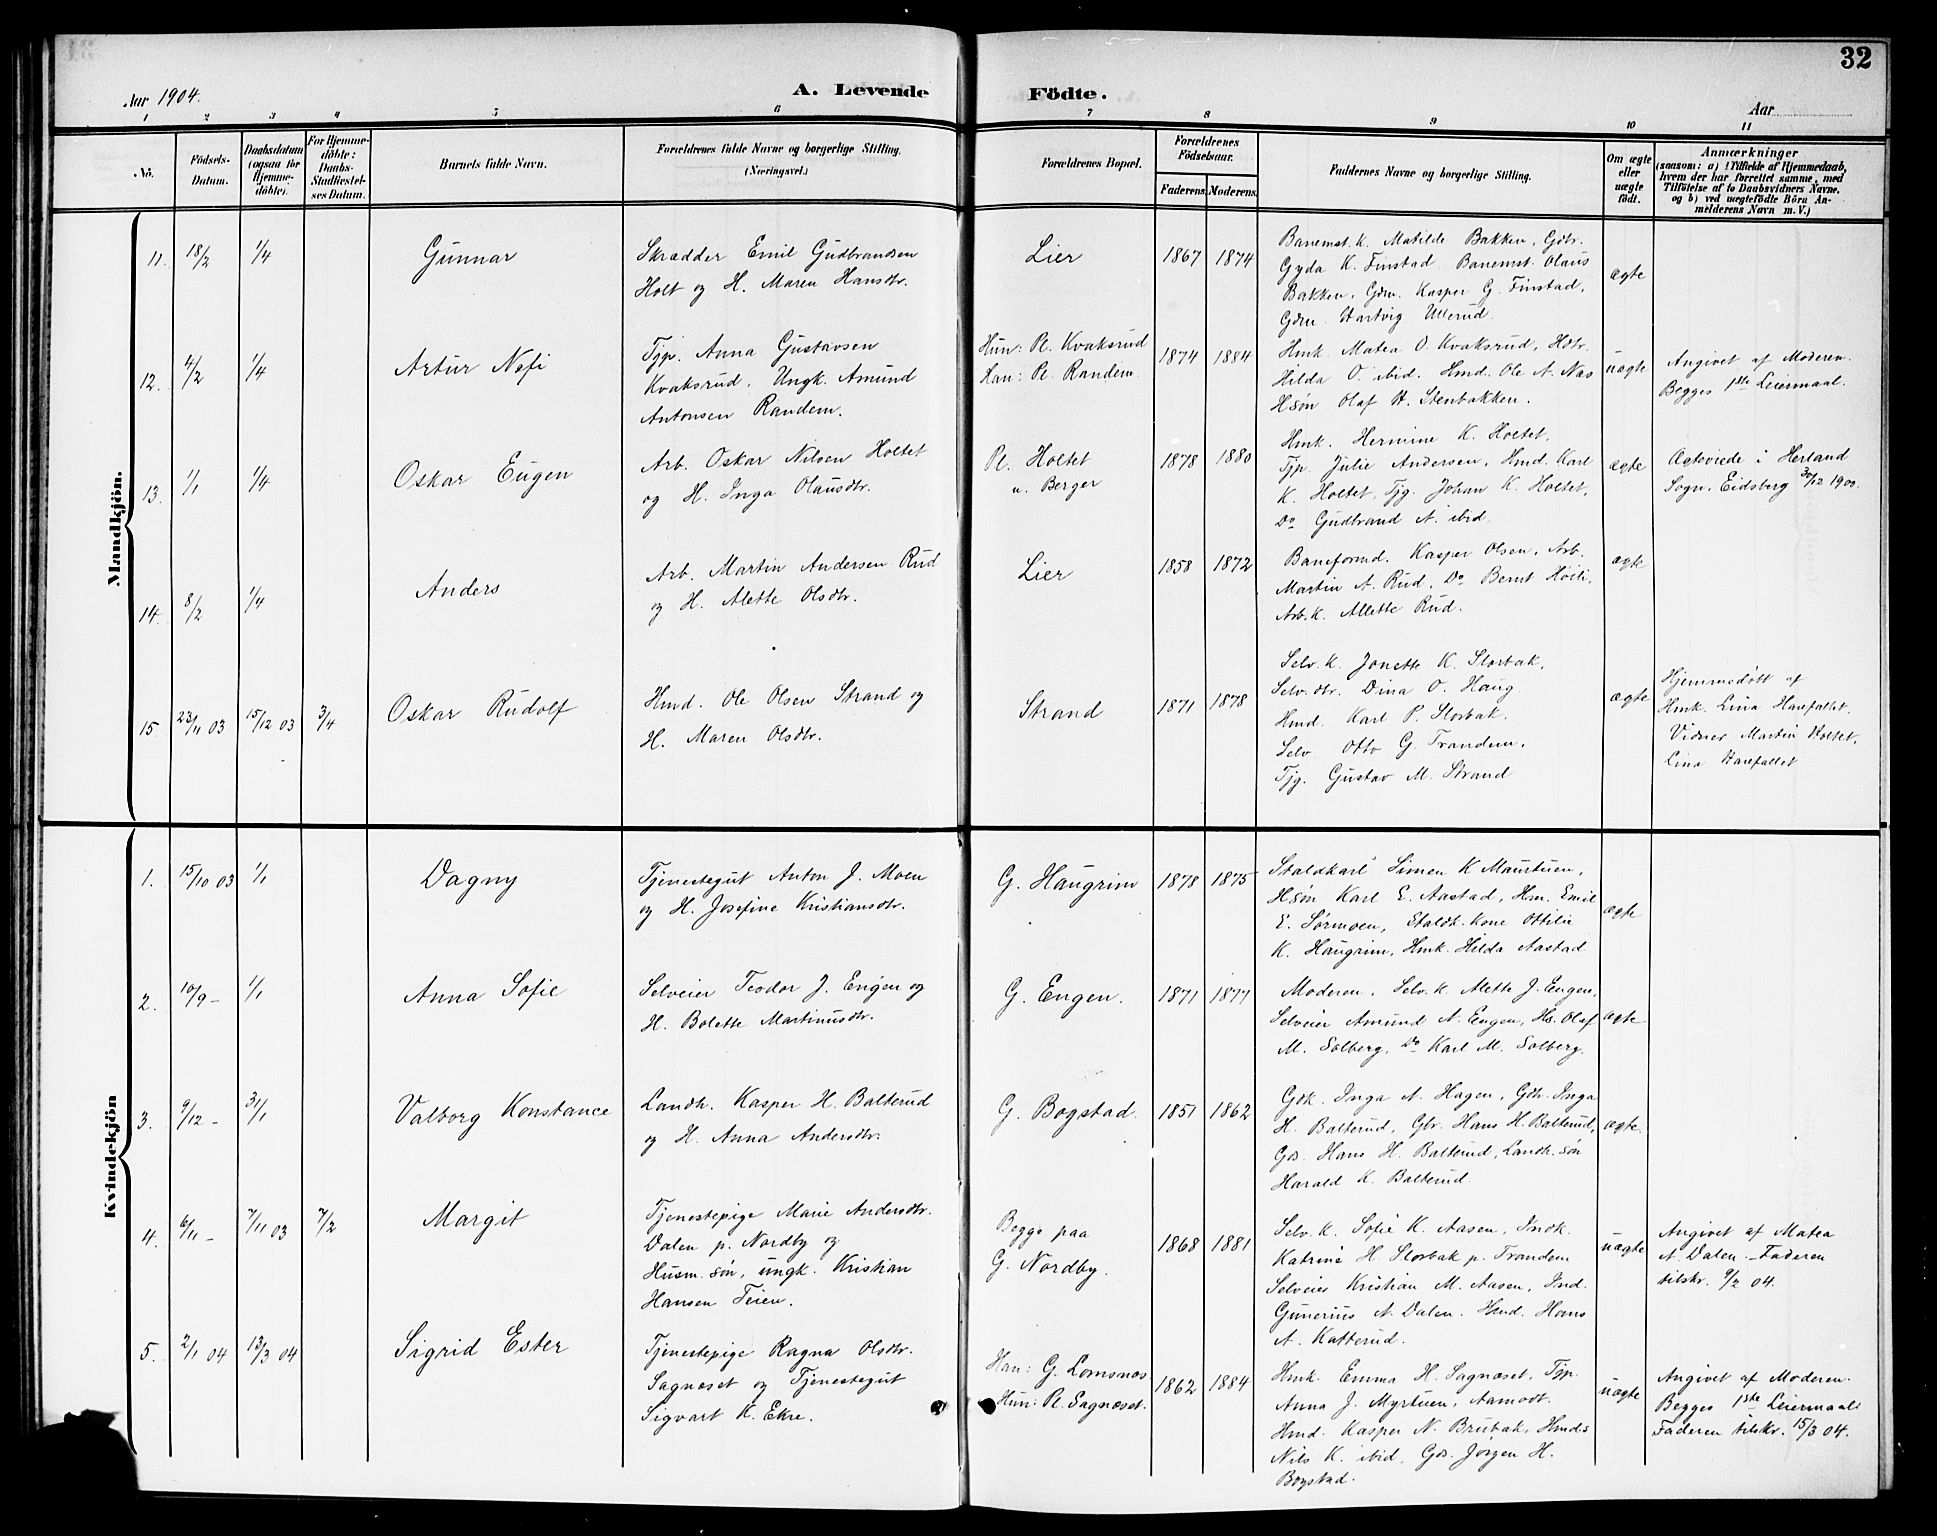 32
Aar 1904.
A. Levende Födte.
Aar
1 2 3 4 5 6 7 8 9 10 11
No.
Födsels-Datum.
Daabsdatum (ogsaa for Hjemmedöbte).
For Hjemmedöbte: Daabs-Stadfæstelses Datum.
Barnets fulde Navn.
Forældrenes fulde Navne og borgerlige Stilling. (Næringsvei.)
Forældrenes Bopæl.
Forældrenes Födselsaar.
Faderens. Moderens.
Faddernes Navne og borgerlige Stilling.
Om ægte eller uægte födt.
Anmærkninger
(saasom: a) i Tilfælde af Hjemmedaab, hvem der har forrettet samme, med Tilföielse af to Daabsvidners Navne, og b) ved uægtefödte Börn Anmelderens Navn m. V.)
Mandkjön.
11. 18/2 1/4 Gunnar
Skrædder Emil Gudbrandsen
Holt og H. Maren Hansdtr.
Lier 1867 1874
Banemst. K. Matilde Bakken, Gdtr.
Gyda K. Finstad. Banemst. Olaus
Bakken, Gdm. Kasper G. Finstad,
Gdm. Hartvig Ullerud.
ægte
12. 4/2 1/4 Artur Nefi
Tjp. Anna Gustavsen
Kvaksrud. Ungk. Amund
Antonsen Randem.
Hun: Pl. Kvaksrud
Han: Pl. Randem.
1874 1884
Hmk. Matea O Kvaksrud, Hdtr.
Hilda O. ibid. Hmd. Ole A. Næs
Hsøn Olaf H. Stenbakken.
uægte
Angivet af Moderen.
Begges 1ste Leiermaal.
13. 1/1 1/4 Oskar Eugen
Arb. Oskar Nilsen Holtet
og H. Inga Olausdtr.
Pl. Holtet
u. Berger
1878 1880
Hmk. Hermine K. Holtet,
Tjp. Julie Andersen, Hmd. Karl
K. Holtet, Tjg. Johan K. Holtet,
Do Gudbrand N. ibid.
ægte
Ægteviede i Herland
Sogn, Eidsberg 30/12 1900.
14. 8/2 1/4 Anders
Arb. Martin Andersen Rud
og H. Alette Olsdtr.
Lier 1858 1872
Baneformd. Kasper Olsen, Arb.
Martin A. Rud, Do Bernt Höili,
Arb.k. Allette Rud.
ægte
15. 23/11 03 15/12 03 3/4 Oskar Rudolf
Hmd. Ole Olsen Strand og
H. Maren Olsdtr.
Strand 1871 1878
Selv.k. Jonette K. Slorbak,
Selv.dtr. Dina O. Haug
Hmd. Karl P. Slorbak.
Selv. Otto G. Trandem.
Tjg. Gustav M. Strand
ægte
Hjemmedøbt af
Hmk. Lina Harefallet.
Vidner Martin Holtet,
Lina Harefallet
Kvindekjön
1. 15/10 03 1/1 Dagny
Tjenestegut Anton J. Moen
og H. Josefine Kristiansdtr.
G. Haugrim 1878 1875
Staldkarl Simen K Maurtuen,
Hsøn Karl E. Aastad, Hm. Emil
E. Sørmoen, Staldk. Kone Ottilie
K. Haugrim, Hmk. Hilda Aastad
ægte
2. 10/9 – 1/1 Anna Sofie
Selveier Teodor J. Engen og
H. Bolette Martinusdtr.
G. Engen. 1871 1877
Moderen, Selv.k. Alette J. Engen,
Selveier Amund A. Engen, Hs. Olaf
M. Solberg, Do Karl M. Solberg.
ægte
3. 9/12 – 31/1 Valborg Konstance
Landh. Kasper H. Balterud
og H. Anna Andersdtr.
G. Bogstad. 1851 1862
Gdk. Inga A. Hagen, Gdtr. Inga
H. Balterud, Gbr. Hans H. Balterud,
Gds. Hans H. Balterud, Landh. søn
Harald K. Balterud.
ægte.
4. 6/11 – 7/11 03 7/2 Margit
Tjenestepige Marie Andersdtr.
Dalen p. Nordby og
Husm. søn, ungk. Kristian
Hansen Teien.
Begge paa
G. Nordby.
1868 1881
Selv.k. Sofie K. Aasen, Indk.
Katrine H Slorbak p. Trandem
Selveier Kristian M. Aasen, Ind.
Gunerius A. Dalen. Hmd. Hans
A. Katterud.
uægte
Angivet af Matea
A. Dalen. – Faderen
tilskr. 9/2 04.
5. 2/1 04 13/3 04 Sigrid Ester
Tjenestepige Ragna Olsdtr.
Sagnæset og Tjenestegut
Sigvart K. Ekre.
Han: G. Lomsnæs
Hun: Pl. Sagnæset.
1862 1884
Hmk. Emma H. Sagnæset, Tjp.
Anna J. Myrtuen, Aamodt.
Hmd. Kasper N. Brubak, Hmds
Nils K. ibid, Gds. Jørgen H.
Bogstad.
uægte
Angivet af Moderen.
Begges 1ste Leiermaal
Faderen tilskr. 15/3 04.